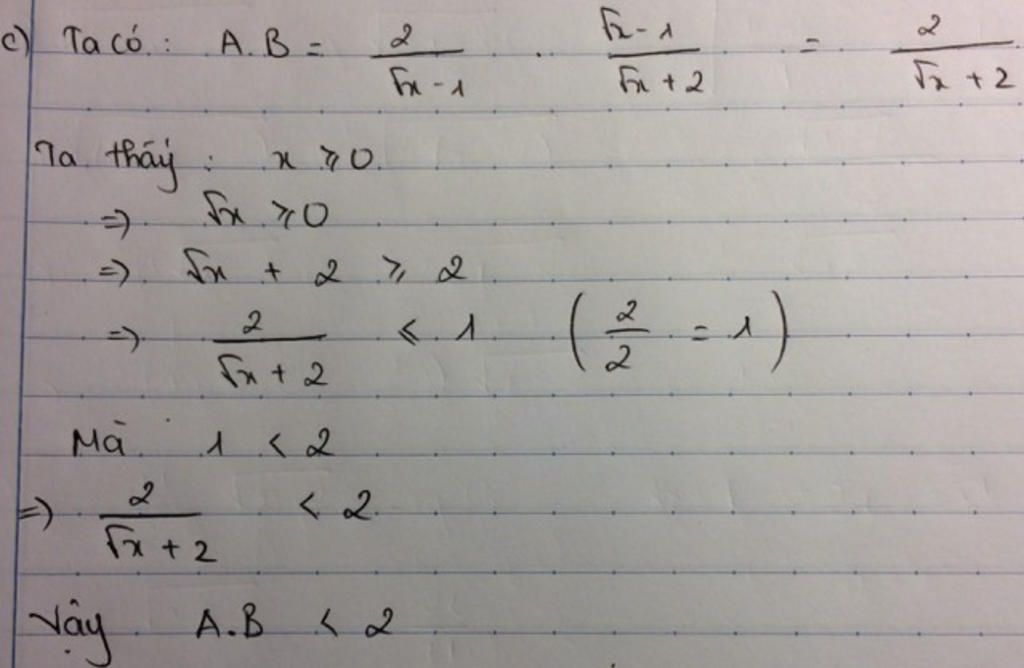 c) Ta có: A.B = 2/(√x - 1) . (√x - 1)/(√x + 2) = 2/(√x + 2)
Ta thấy: x ⩾ 0
=> √x ⩾ 0
=> √x + 2 ⩾ 2
=> 2/(√x + 2) ⩽ 1 (2/2 = 1)
Mà 1 < 2
=> 2/(√x + 2) < 2
Vậy A.B < 2